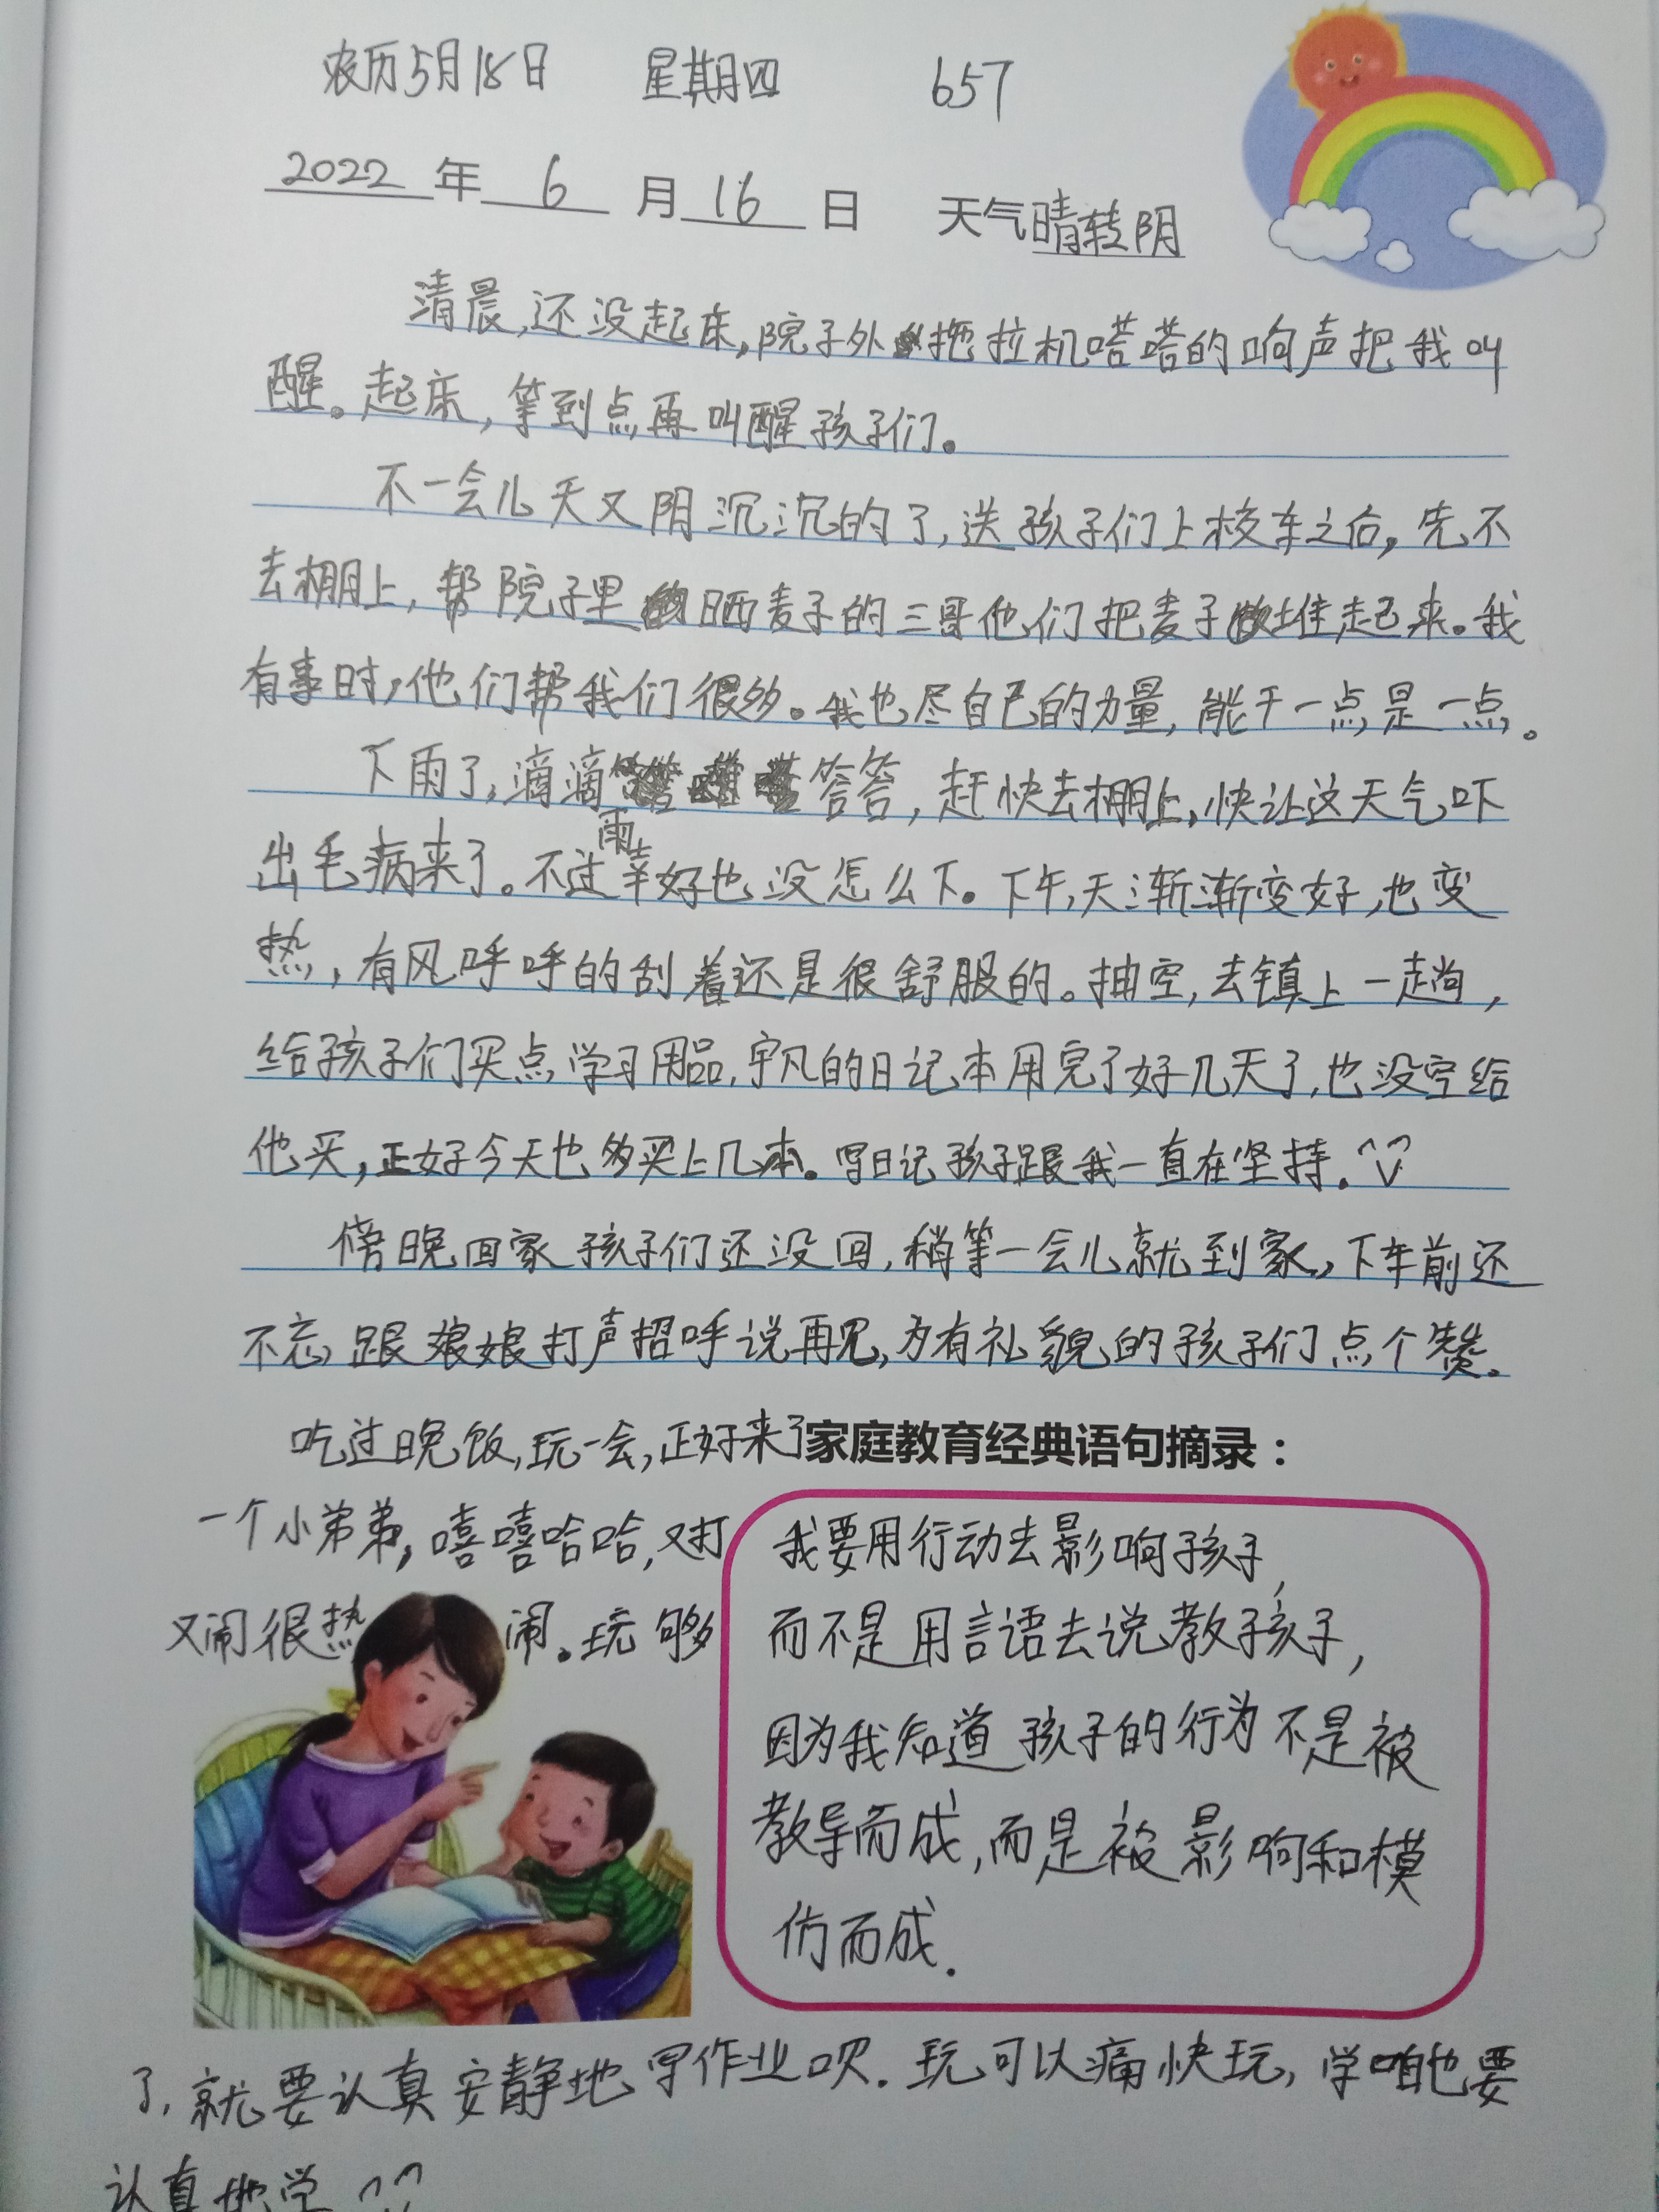 农历5月18日 星期四 657
2022年6月16日 天气晴转阴
清晨,还没起床,院子外拖拉机嗒嗒的响声把我叫
醒。起床,等到点再叫醒孩子们。
不一会儿天又阴沉沉的了,送孩子们上校车之后,先不
去棚上,帮院子里晒麦子的三哥他们把麦子堆起来。我
有事时,他们帮我们很多。我也尽自己的力量,能干一点是一点。
下雨了,滴滴答答,赶快去棚上,快让这天气吓
出毛病来了。不过雨幸好也没怎么下。下午,天渐渐变好,也变
热,有风呼呼的刮着还是很舒服的。抽空,去镇上一趟,
给孩子们买点学习用品,宇凡的日记本用完了好几天了,也没空给
他买,正好今天也多买上几本。写日记孩子跟我一直在坚持。
傍晚回家孩子们还没回,稍等一会儿就到家,下车前还
不忘跟娘娘打声招呼说再见,为有礼貌的孩子们点个赞。
吃过晚饭,玩一会,正好来了
一个小弟弟,嘻嘻哈哈,又打
又闹很热闹。玩够
家庭教育经典语句摘录:
我要用行动去影响孩子,
而不是用言语去说教孩子,
因为我知道孩子的行为不是被
教导而成,而是被影响和模
仿而成.
了,就要认真安静地写作业呗.玩可以痛快玩,学咱也要
认真地学